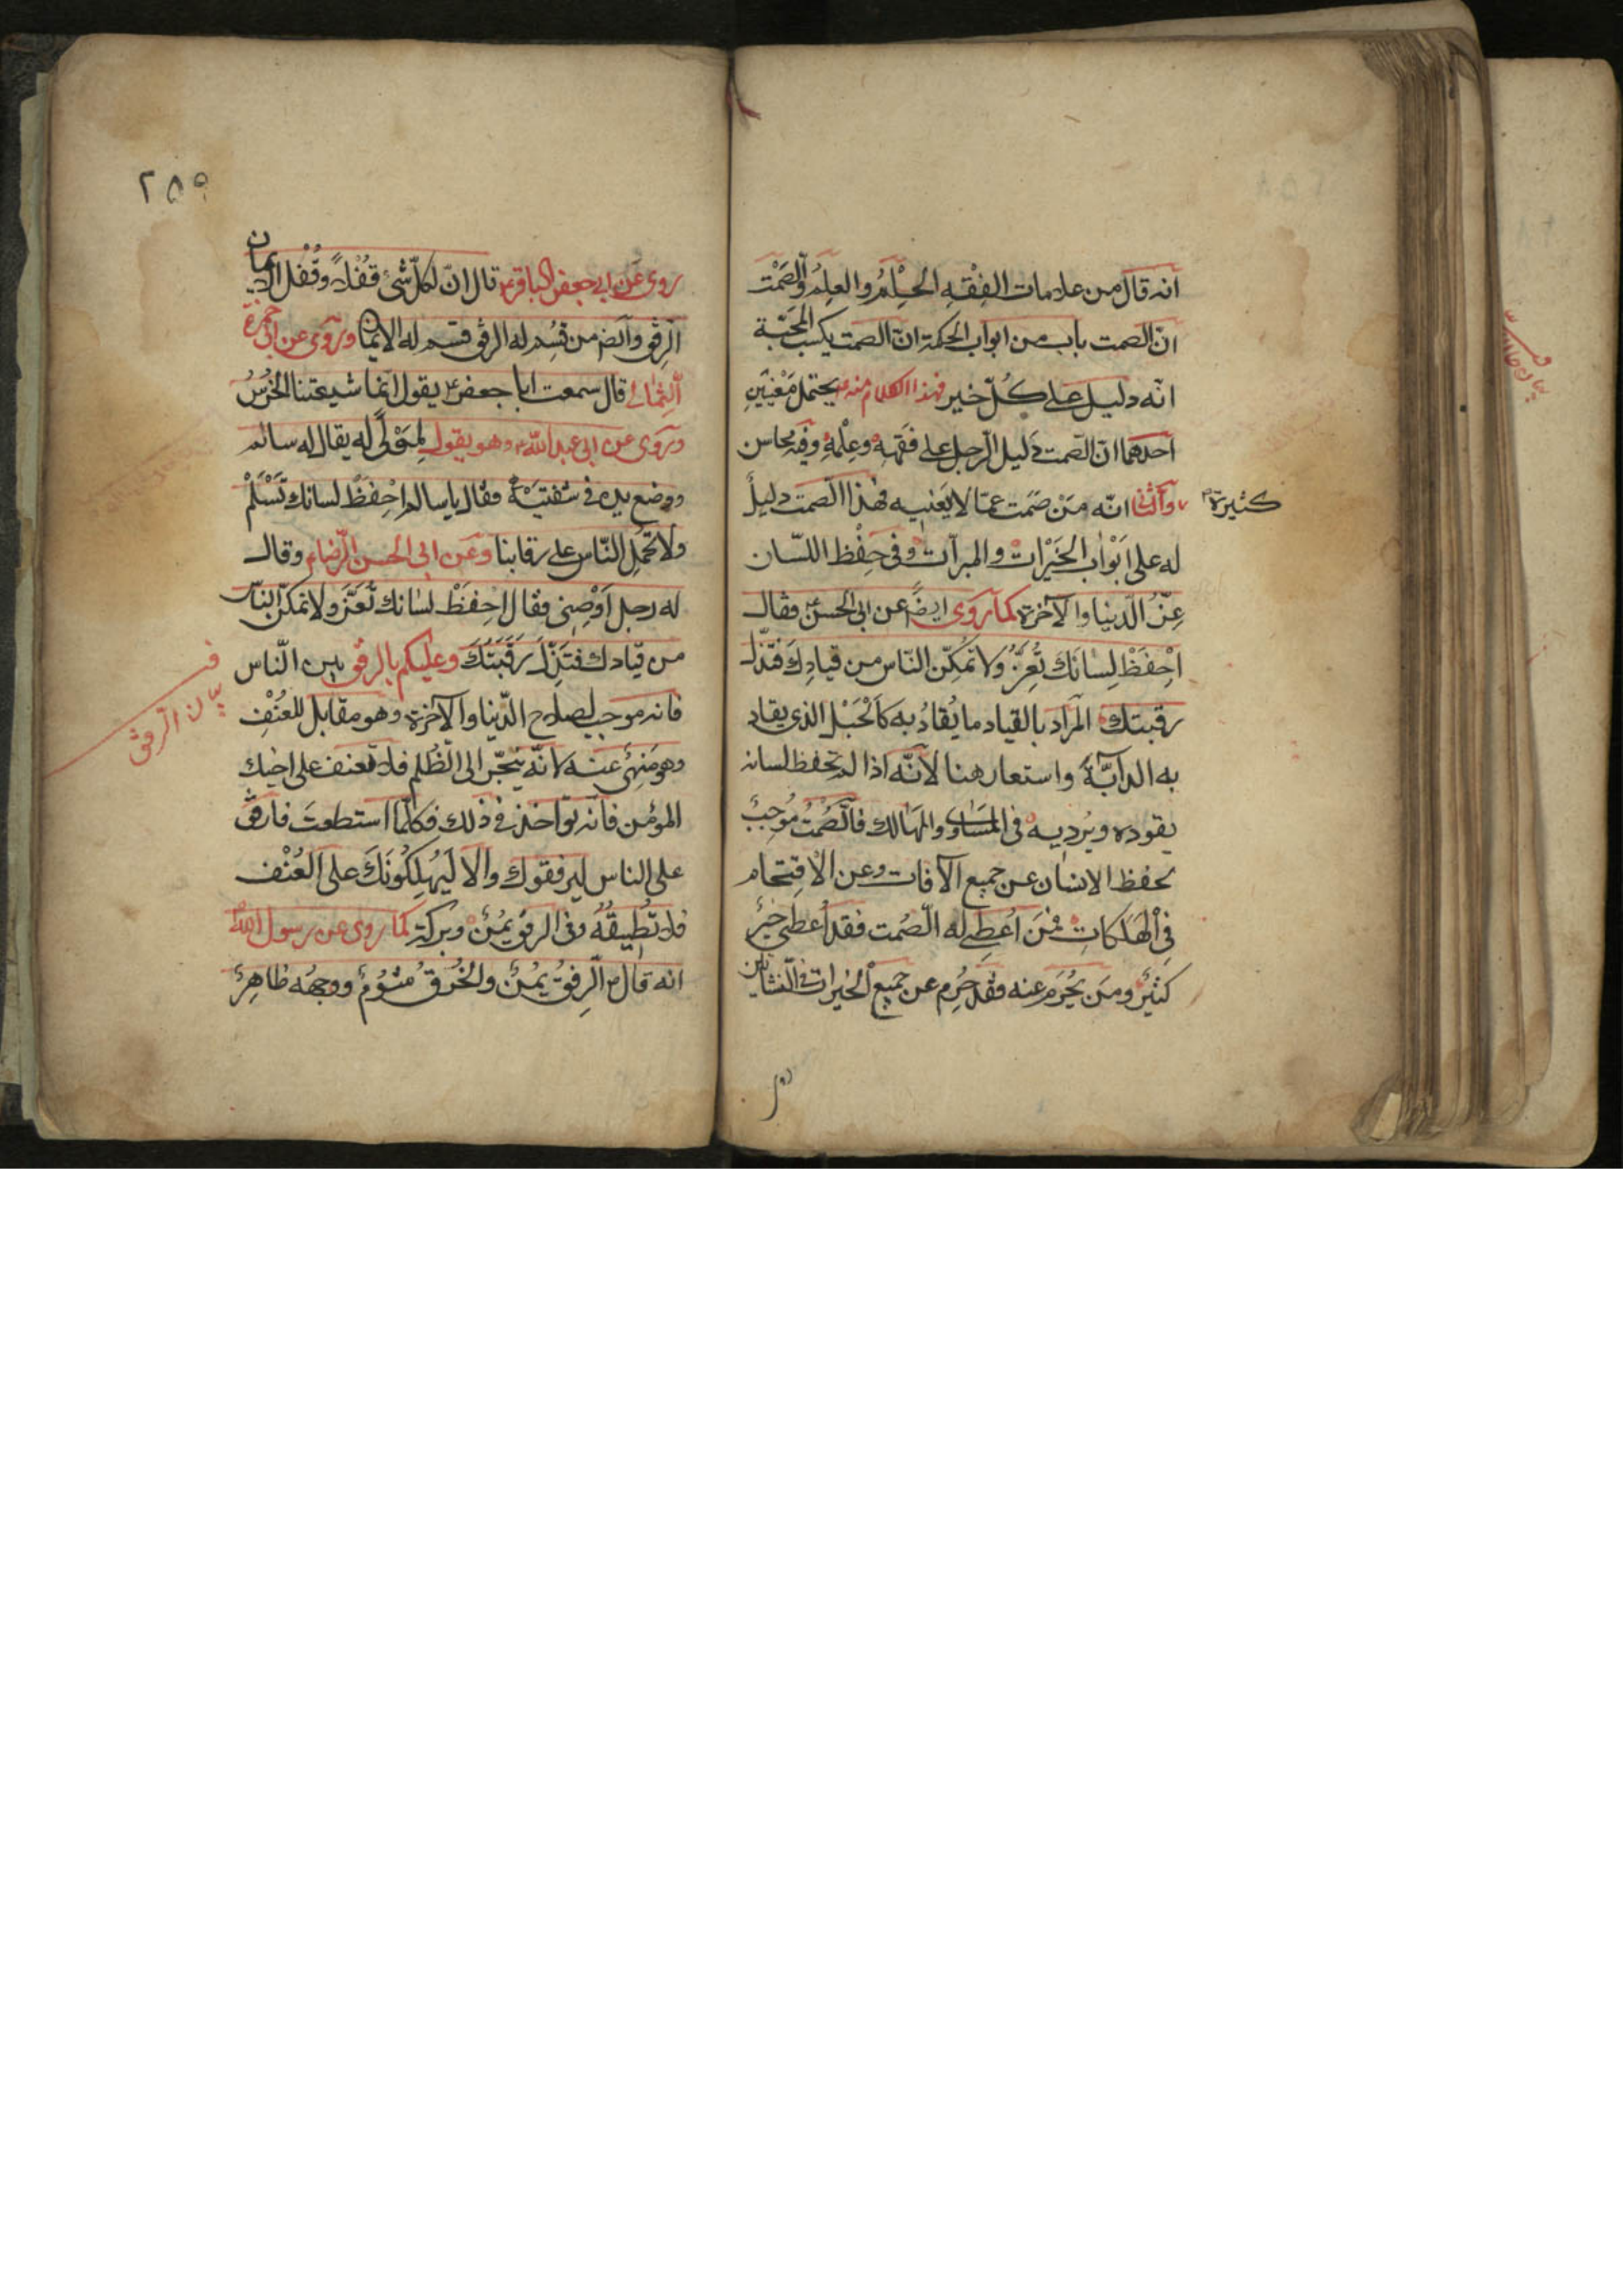 انه قال من علامات الفِقْهِ الحِلْمُ والعِلمُ والصَّمْت
انّ الصمت باب من ابواب الحكمة انّ الصمت يكسب المحَبّة
انّه دليل على كُلّ خير فهذا الكلام منه ع يحتمل مَعْنيَينِ
احدهما انّ الصّمت دَليل الرّجل على فَقَهِهِ وعِلْمِهِ وفيه محاسن
كثيرة
وآلثّانى انّه مَنْ صَمَت عمّا لا يَعْنِيه فهٰذا الصّمت دليلٌ
له على اَبْوٰاب الخَيْرات والمبرآت وفى حِفْظ اللسّان
عِزُّ الدّنيا والآخرة كما روى ايضاً عن ابى الحسن ع فقال
اِحْفَظْ لِسٰانَكَ تُعِزُّ ولا تُمكِّن النّاس من قيادِكَ فتذلّ
رقبتك المراد بالقياد ما يُقادُ به كاَلْحَبْل الذى يقاد
به الدابّةَ واستعار هنا لاَنّه اذا لم تحفظ لسانه
يقوده ويُرديه فى المسَاوى والمهَالك فالصَّمْتُ مُوجِبٌ
بحفظ الانسٰان عن جميع الآفات وعن الاِقتِحام
فِى اْلهَلَكاتِ فمَنَ اُعْطِىَ له الصّمت فقد اُعطى خيرٌ
كثيرٌ ومَن يُحْرَم عنه فقد حُرِم عن جميع الخيرات فى النّشأتين
٢٥٩
روى عَن ابى جعفر الباقر ع قال انّ لكلّ شئ قُفْلاً وقُفْل الايمان
الرِفق وآيضًا من قُسِم له الرفق قسم له الايمان وروى عن ابى حمزة
الثِّمالى قال سمعت ابا جعفر ع يقول انّما شيعتنا الخُرْسُ
وروى عن ابى عبد الله ع وهو يقول لِمَوْلًى له يقال له سالم
ووضع يده فى شفتيَهْ وقال يا سالم اِحْفِظْ لسانك تَسْلَمْ
ولا تحْمِل النّاس على رقابنا وعَن ابى الحسن الرّضاء وقال
له رجل اَوْصِنِى فقال اِحفِظْ لسٰانك تُعَزَّ ولا تمكّن النّاس
من قيادك فتَذِلَّ رَقَبَتُكَ وعليكم بالرفق بين النّاس
فانه موجب لصلاح الدّنيا والآخرة وهو مقابل للعُنْفِ
وهو مَنهِىٌّ عنه لانّه يَنجّر الى الظُلم فلا تعنف على اخيك
المؤمن فانّه تؤاخذ فى ذلك فكلّما استطعتَ فارفق
على الناس ليرفقوك والا ليَهُلِكُونَكَ على العُنْف
فلا تُطِيقُهُ وفى الرفق يُمْنٌ وبركة كما روى عن رسول الله
انه قال ص الرّفقُ يُمْنٌ والخُرقُ شُؤُمٌ ووجهه ظاهِرٌ
فى
بيان الرفق